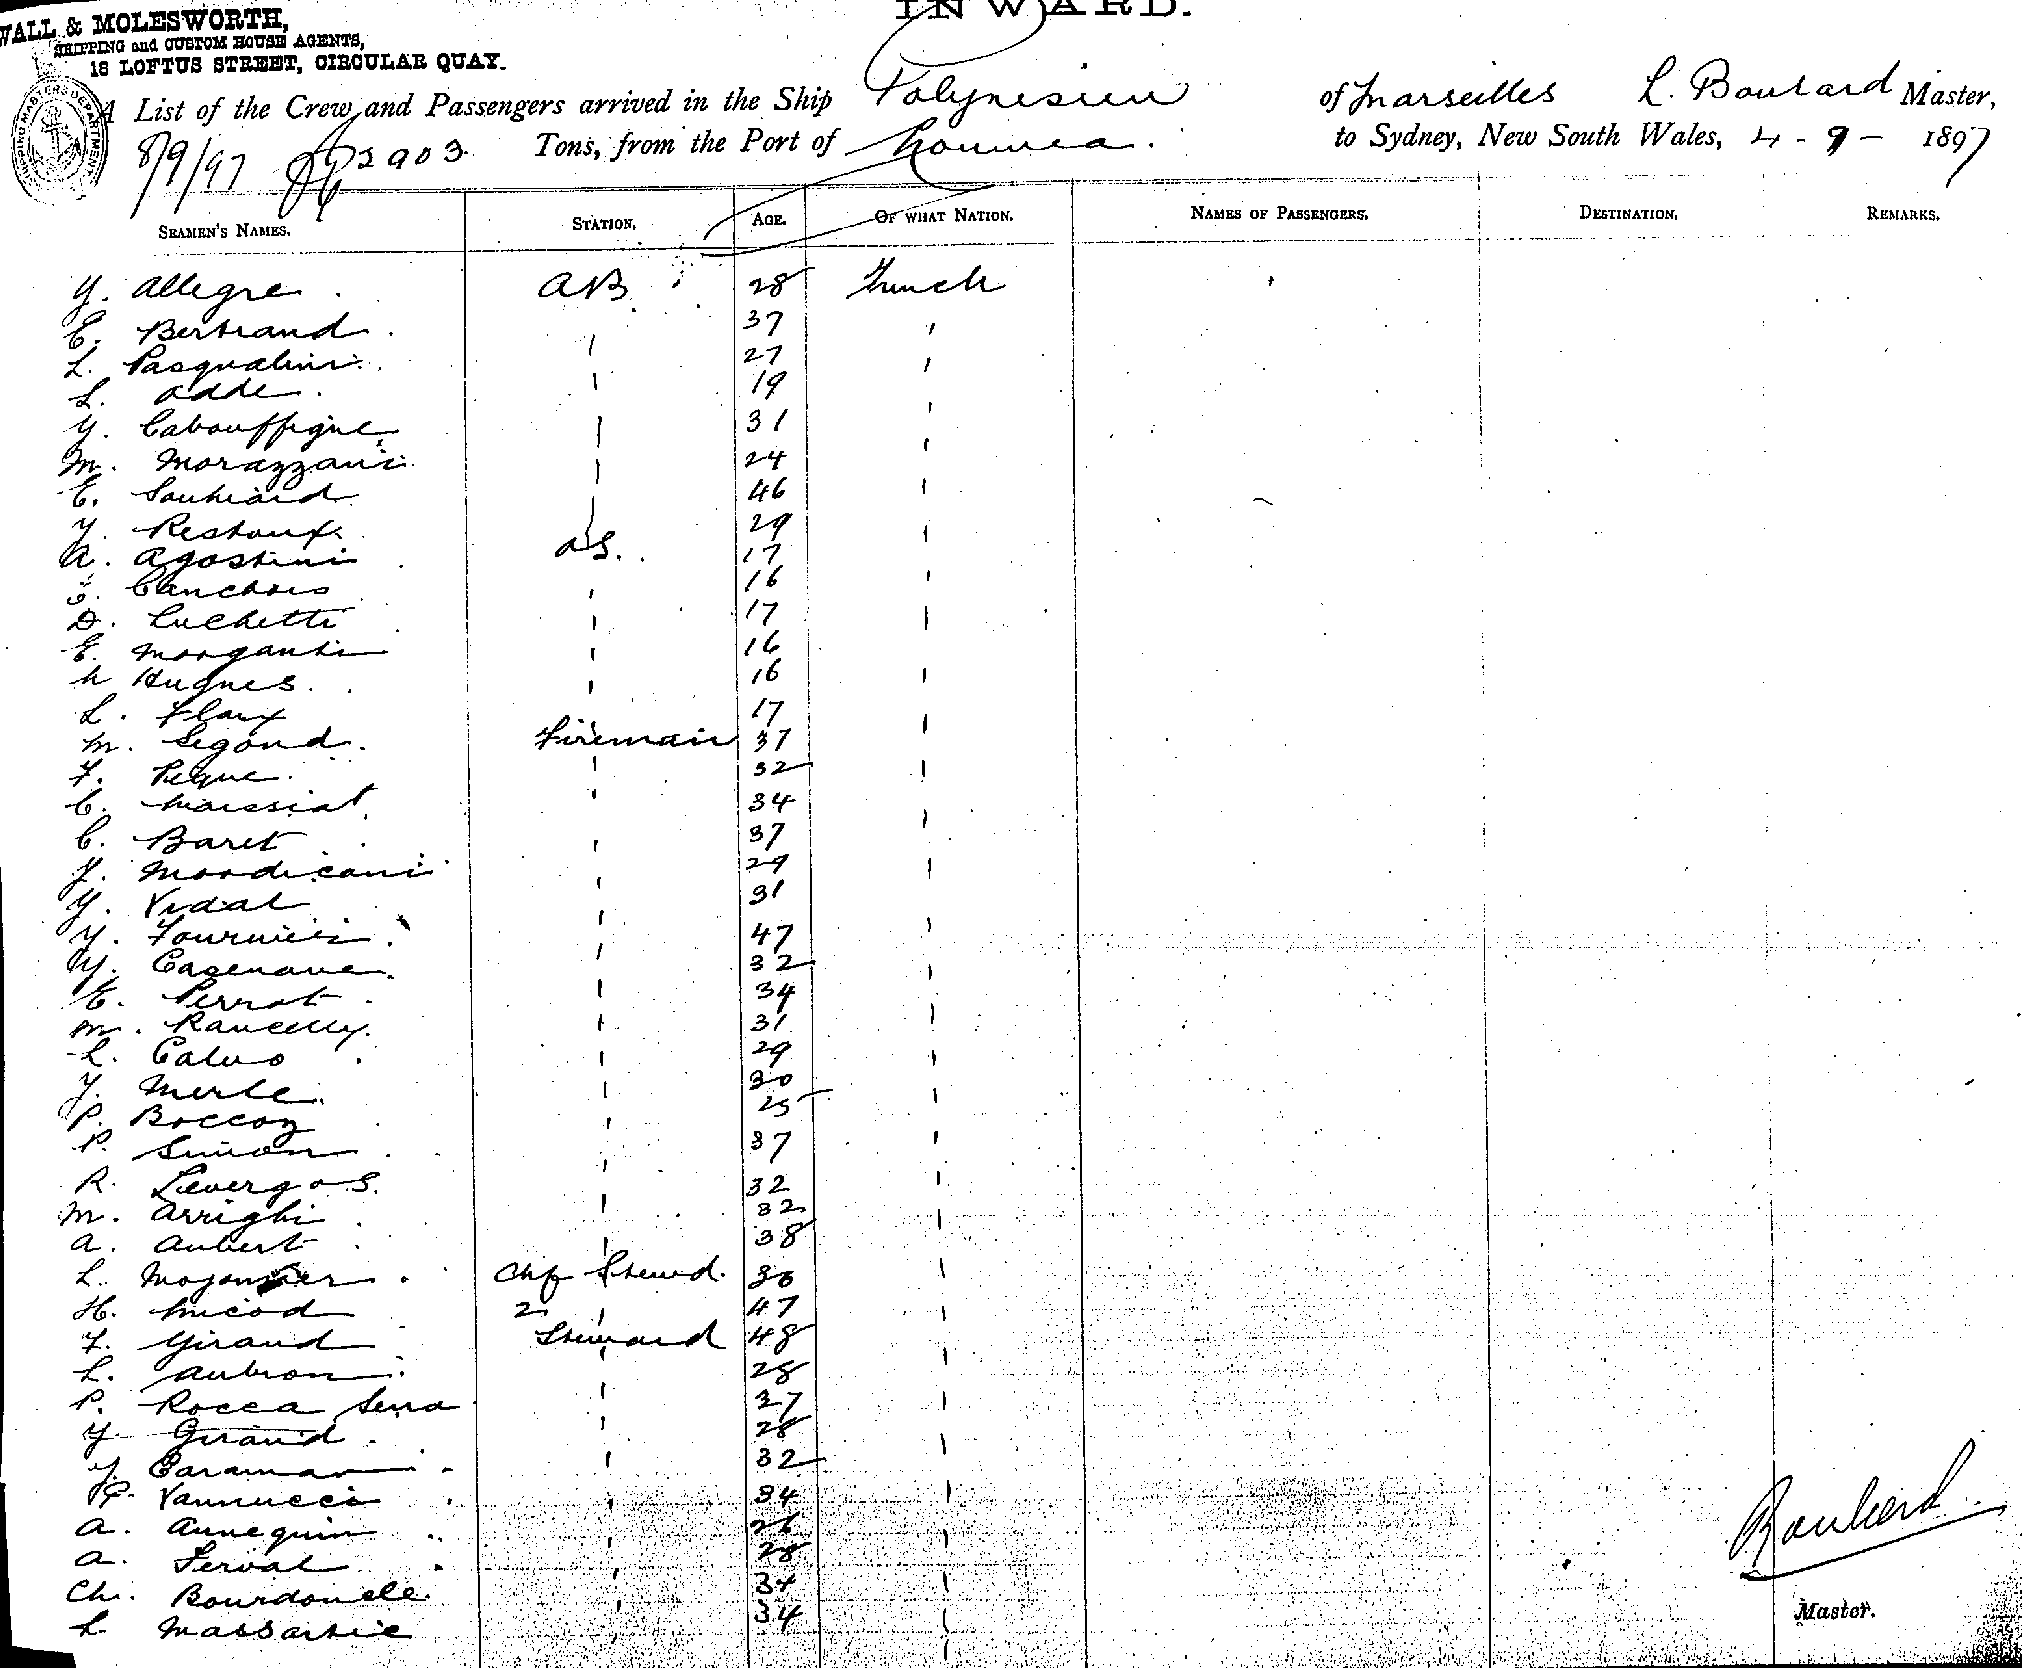 INWARD.
WALL & MOLESWORTH,
SHIPPING and CUSTOM HOUSE AGENTS,
18 LOFTUS STREET, CIRCULAR QUAY.
A List of the Crew and Passengers arrived in the Ship Polynesien of Marseilles L. Boulard Master,
8/9/97 2903 Tons, from the Port of Noumea. to Sydney, New South Wales, 4-9-1897
SEAMEN'S NAMES. STATION. AGE. OF WHAT NATION. NAMES OF PASSENGERS. DESTINATION. REMARKS.
Y. Allegre AB 28 French
E. Bertrand 37
L. Pasqualini 27
L. Adde 19
Y. Cabouffigue 31
M. Morazzani 24
E. 46
Y. Restoux 29
A. Agostini OS. 17
Canchois 16
D. Luchetti 17
E. Morganti 16
Hugues 16
L. Flory 17
M. Segond Fireman 37
F. Pegue 32
C. Marssiat 34
C. Baret 37
J. Mordicani 29
Y. Vidal 31
Y. Fournier 47
Y. Casenave 32
E. Pernot 34
M. Rancelly 31
L. Calvo 29
J. Merle 30
P. Boccoz 25
P. Simon 37
R. Levergos. 32
M. Arrighi 32
A. Aubert 38
L. Chf Stewd.
H. Micod 2 47
F. Giraud Steward 48
L. Aubron 28
P. Rocca Serra 27
Y. Giraud 28
Y. Caraman 32
P. Vannucci 34
A. Annequin 26
A. Serval 28
Ch. Bourdonele 34
L. Massartie 34
Boulard
Master.